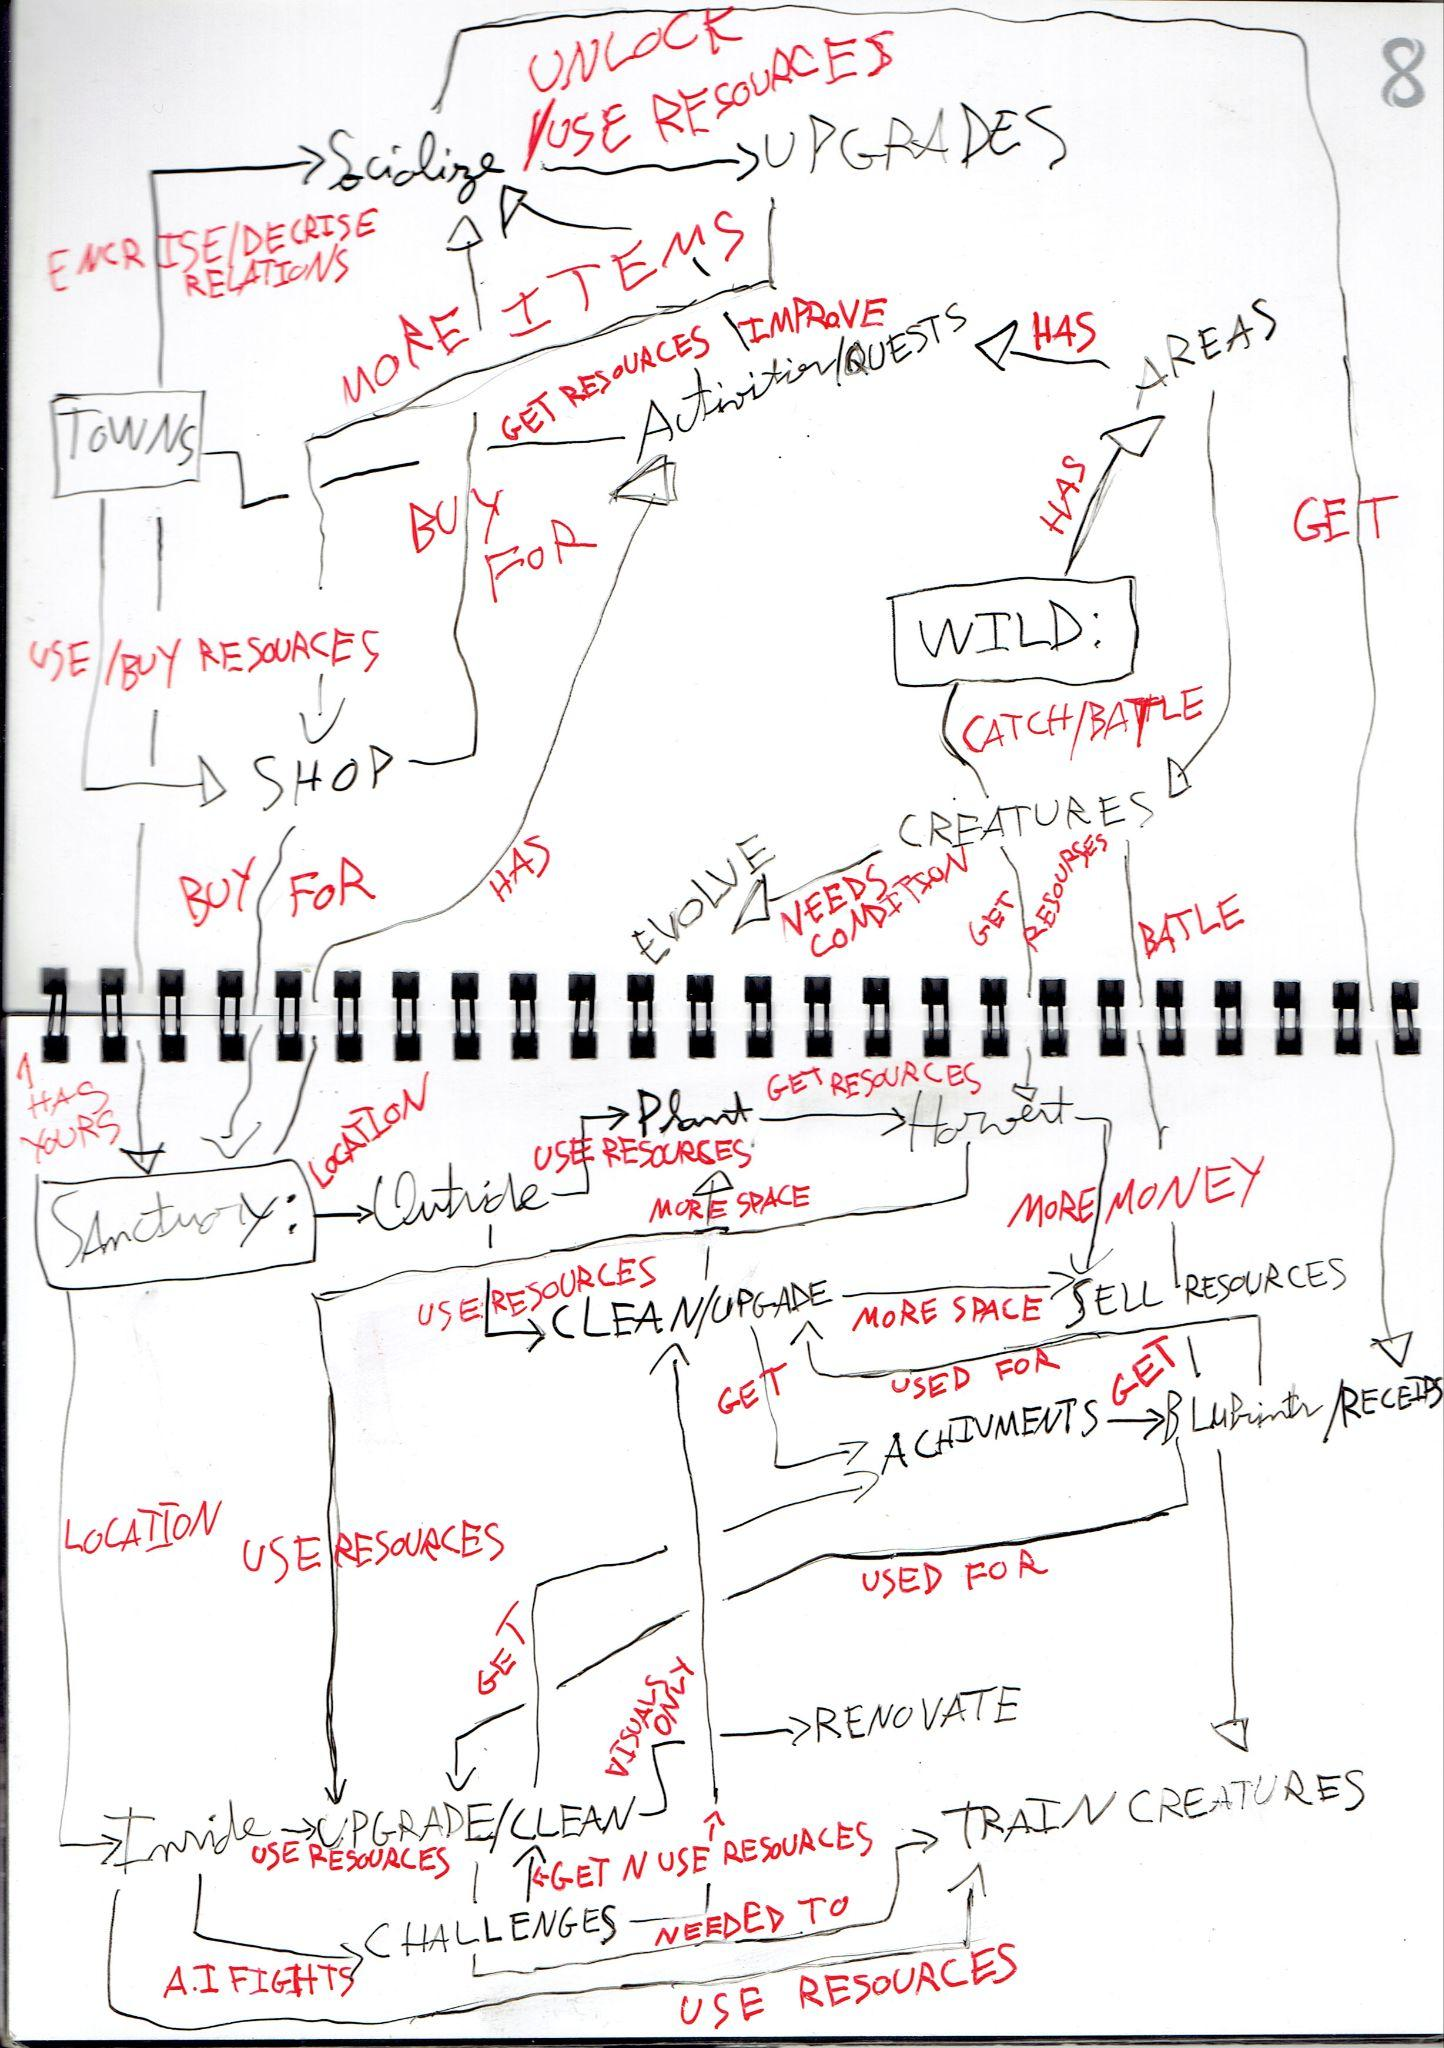 8
UNLOCK
/USE RESOURCES
Socialize
UPGRADES
ENCRISE/DECRISE
RELATIONS
MORE ITEMS
GET RESOURCES \IMPROVE
Activities/QUESTS
HAS
AREAS
TOWNS
BUY
FOR
HAS
GET
WILD:
USE/BUY RESOURCES
CATCH/BATTLE
SHOP
CREATURES
BUY FOR
HAS
EVOLVE
NEEDS
CONDITION
GET RESOURSES
BATLE
HAS
YOURS
LOCATION
Plant
GET RESOURCES
Harvest
USE RESOURCES
Sanctuary:
Outside
MORE SPACE
MORE MONEY
USE RESOURCES
CLEAN/UPGADE
MORE SPACE
SELL RESOURCES
GET
USED FOR
GET
ACHIVMENTS
Bluprints/RECEIPS
LOCATION
USE RESOURCES
USED FOR
GET
VISUALS
ONLY
RENOVATE
Inside
UPGRADE/CLEAN
TRAIN CREATURES
USE RESOURCES
GET N USE RESOURCES
CHALLENGES
NEEDED TO
A.I FIGHTS
USE RESOURCES